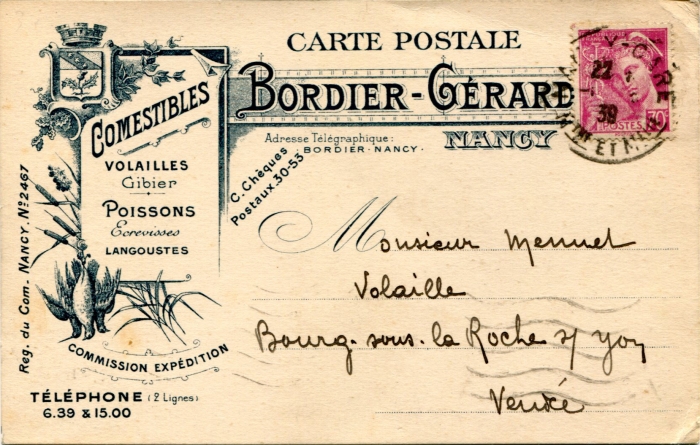 CARTE POSTALE
BORDIER-GÉRARD
NANCY
Adresse Télégraphique:
BORDIER-NANCY.
C. Chèques
Postaux.30-53
COMESTIBLES
VOLAILLES
Gibier
POISSONS
Ecrevisses
LANGOUSTES
COMMISSION EXPÉDITION
Reg. du Com. NANCY. Nº 2467
TÉLÉPHONE (2 Lignes)
6.39 & 15.00
POSTES
30c
22
39
Monsieur Mennet
Volaille
Bourg-sous-la Roche s/ yon
Vendée